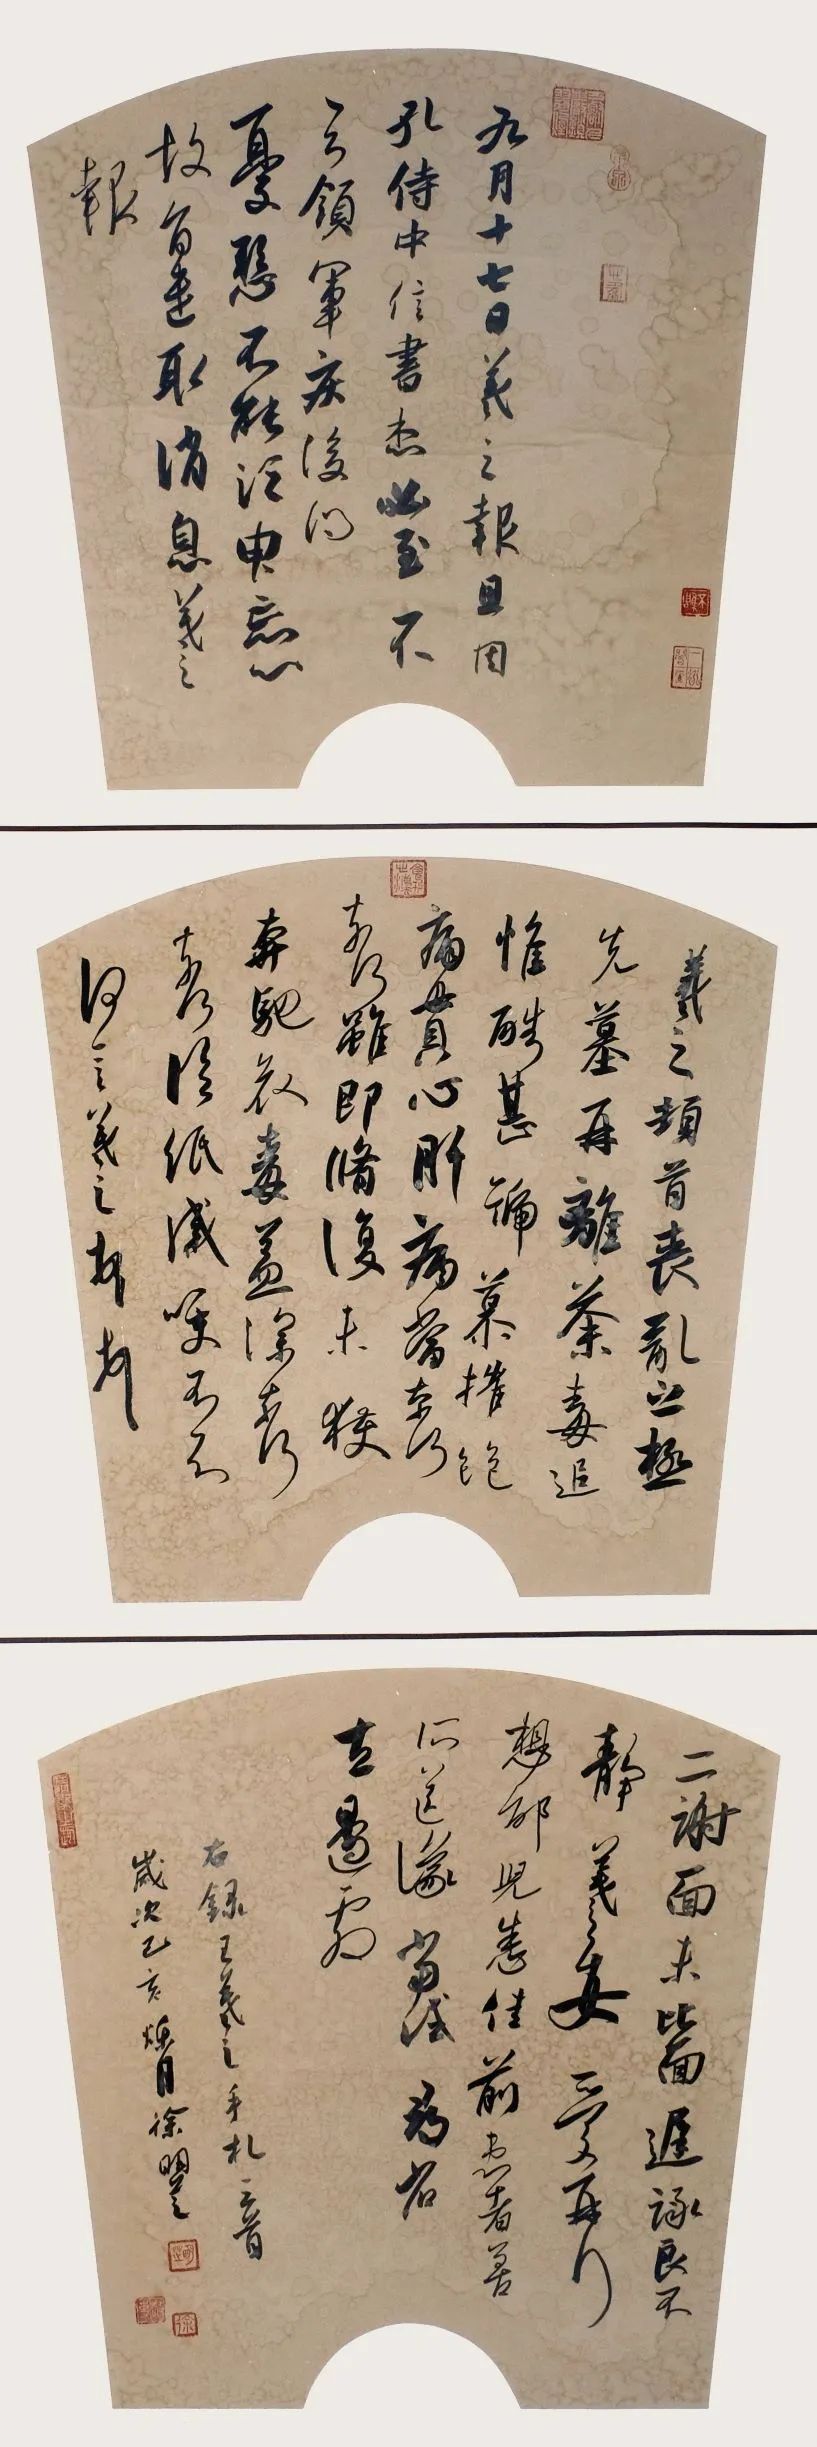 九月十七日羲之報且因
孔侍中信書想必至不
知領軍疾後問
憂懸不能須臾忘心
故旨遣取消息羲之
報
羲之頓首喪亂之極
先墓再離荼毒追
惟酷甚號慕摧絕
痛貫心肝痛當奈何
奈何雖即脩復未獲
奔馳哀毒益深奈何
奈何臨紙感哽不知
何言羲之頓首
二謝面未比面遲詠良不
靜羲之女愛再拜
想邰兒悉佳前患者善
所送議當試尋省
左邊劇
右錄王羲之手札三首
歲次乙亥
月徐